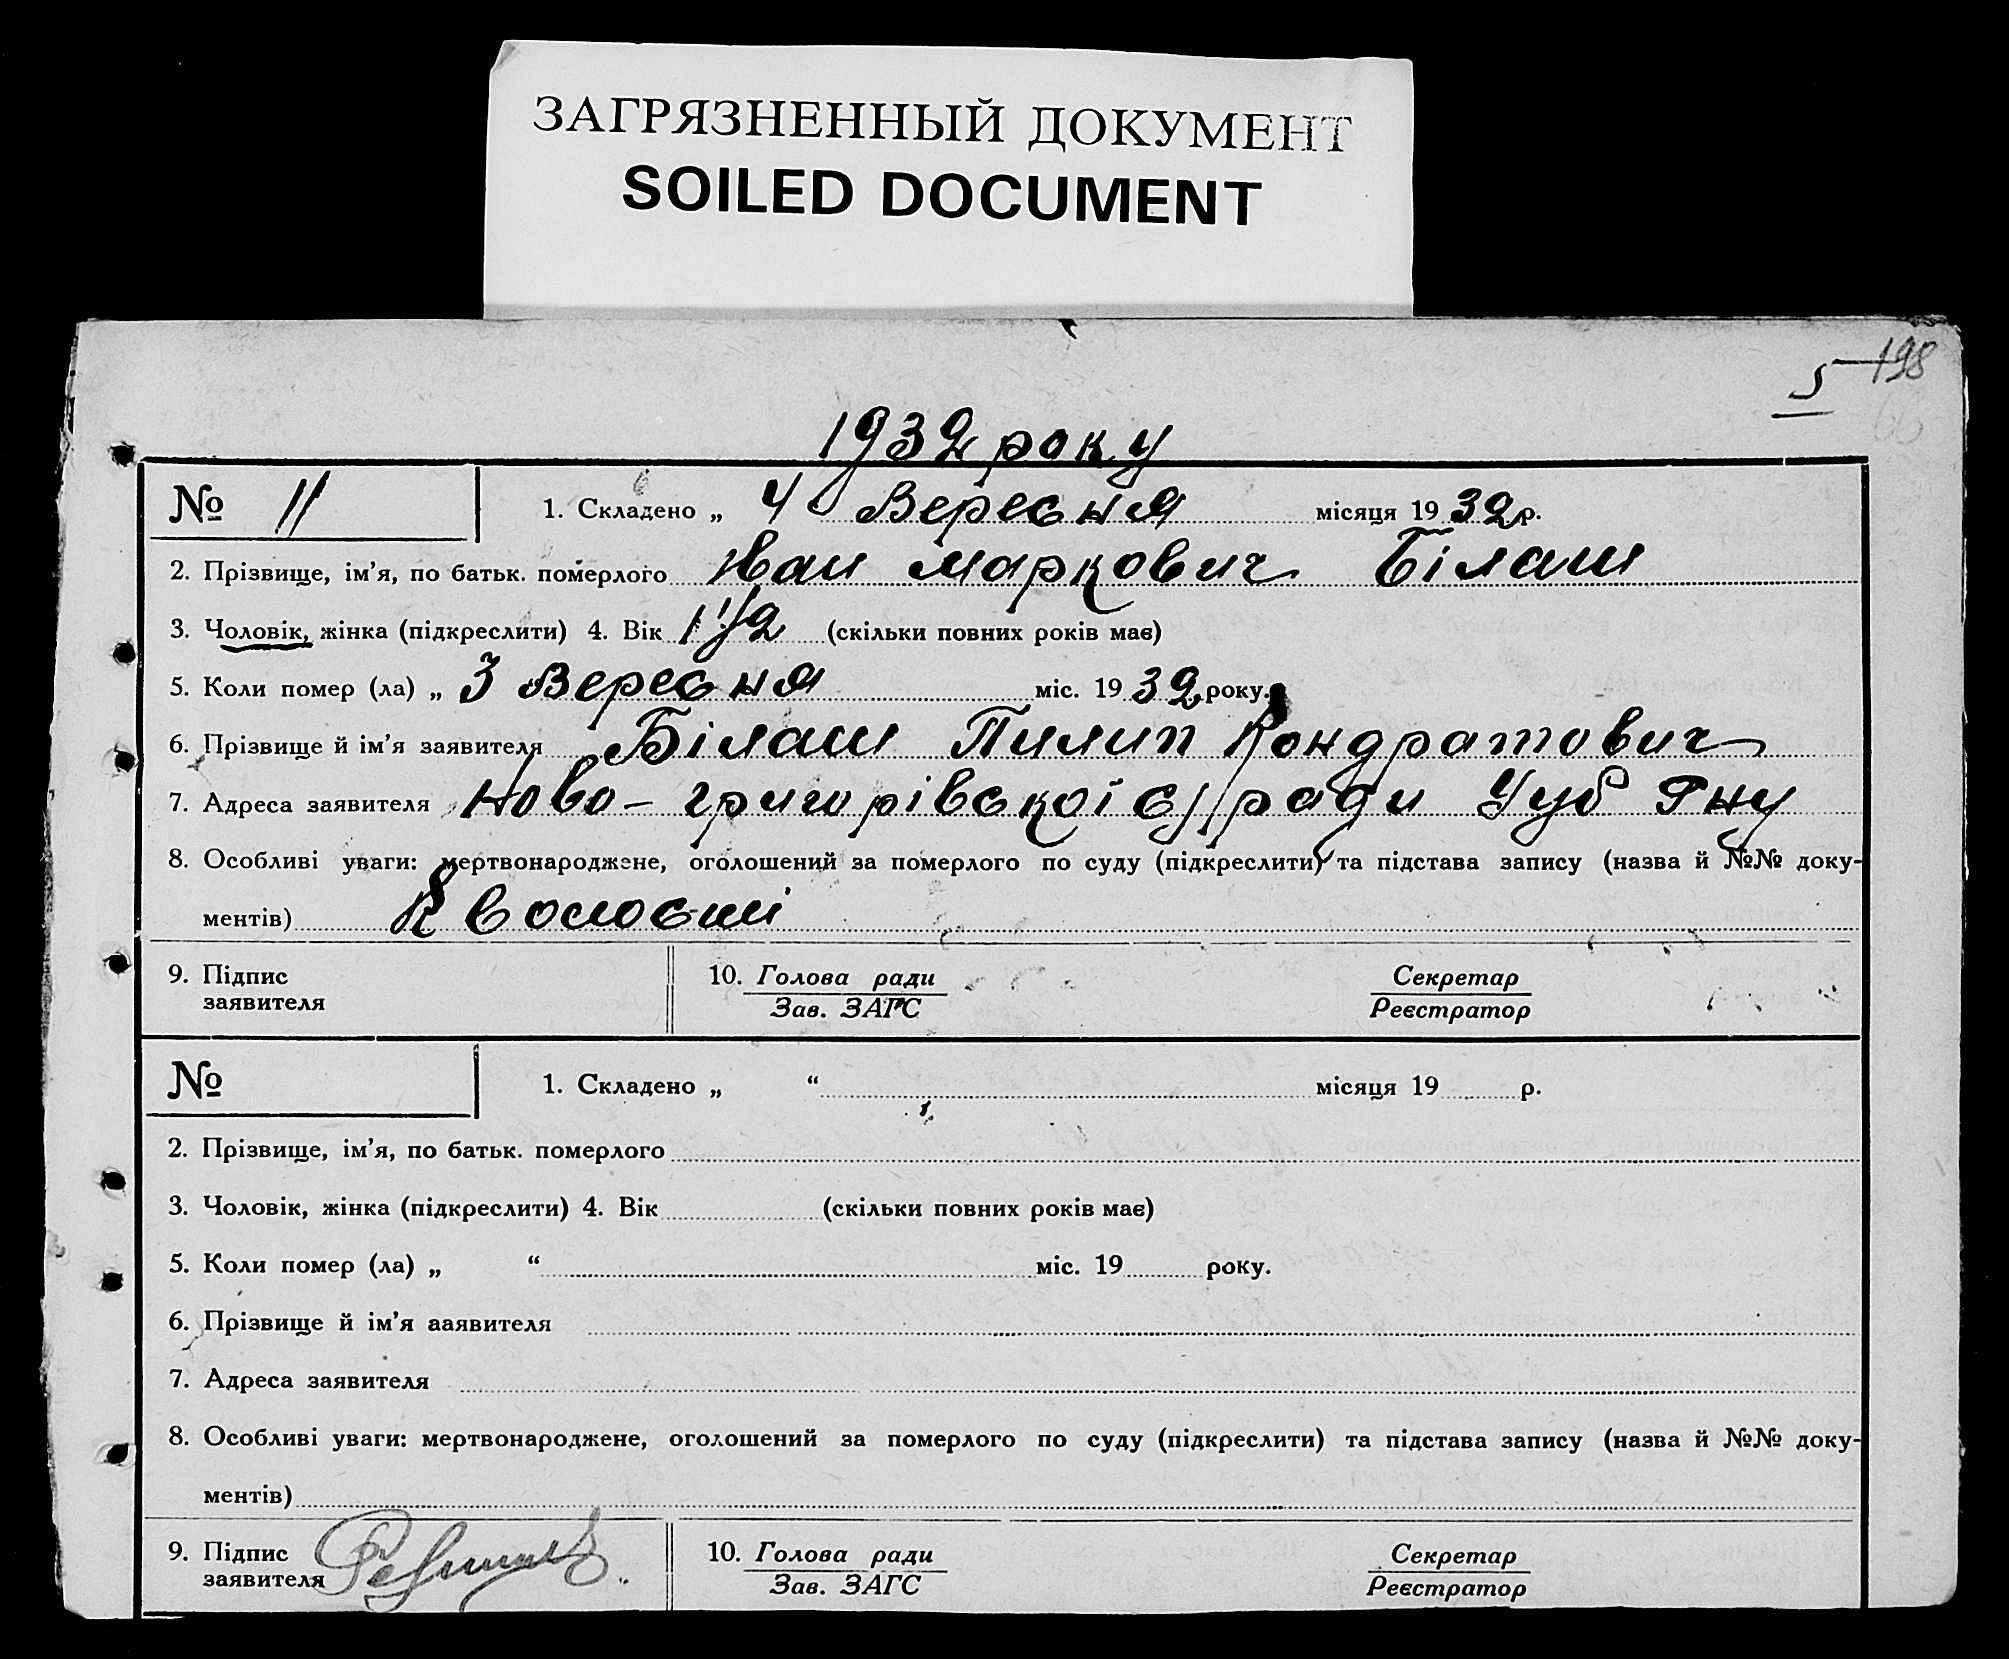 ЗАГРЯЗНЕННЫЙ ДОКУМЕНТ
SOILED DOCUMENT
198
5
1932 року
№ 11 1. Складено „ 4 Вересня місяця 19 32 р.
2. Прізвище, ім'я, по батьк. померлого Іван Маркович Білаш
3. Чоловік, жінка (підкреслити) 4. Вік 1 1/2 (скільки повних років має)
5. Коли помер (ла) „ 3 Вересня міс. 19 32 року.
6. Прізвище й ім'я заявителя Білаш Пилип Кондратович
7. Адреса заявителя Ново-григорівської с/ради Чуб Рну
8. Особливі уваги: мертвонароджене, оголошений за померлого по суду (підкреслити) та підстава запису (назва й №№ доку-
ментів)
9. Підпис 10. Голова ради Секретар
заявителя Зав. ЗАГС Реєстратор
№ 1. Складено „ “ місяця 19 р.
2. Прізвище, ім'я, по батьк. померлого
3. Чоловік, жінка (підкреслити) 4. Вік (скільки повних років має)
5. Коли помер (ла) „ “ міс. 19 року.
6. Прізвище й ім'я ааявителя
7. Адреса заявителя
8. Особливі уваги: мертвонароджене, оголошений за померлого по суду (підкреслити) та підстава запису (назва й №№ доку-
ментів)
9. Підпис 10. Голова ради Секретар
заявителя Зав. ЗАГС Реєстратор